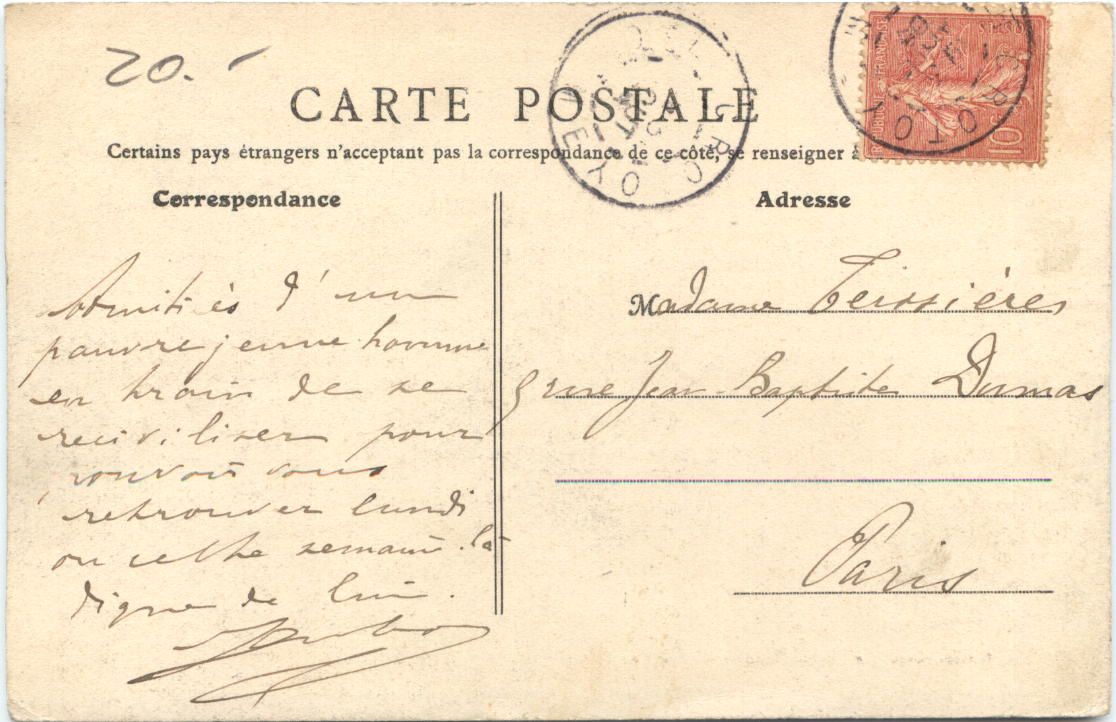 20.
CARTE POSTALE
Certains pays étrangers n'acceptant pas la correspondance de ce côté, se renseigner à
Correspondance
Adresse
REPUBLIQUE FRANÇAISE
10c
Amitiés d'un
pauvre jeune homme
en train de se
reciviliser pour
pouvoir vous
retrouver lundi
ou cette semaine-là
digne de lui.
Madame Teissières
9 rue Jean-Baptiste Dumas
Paris